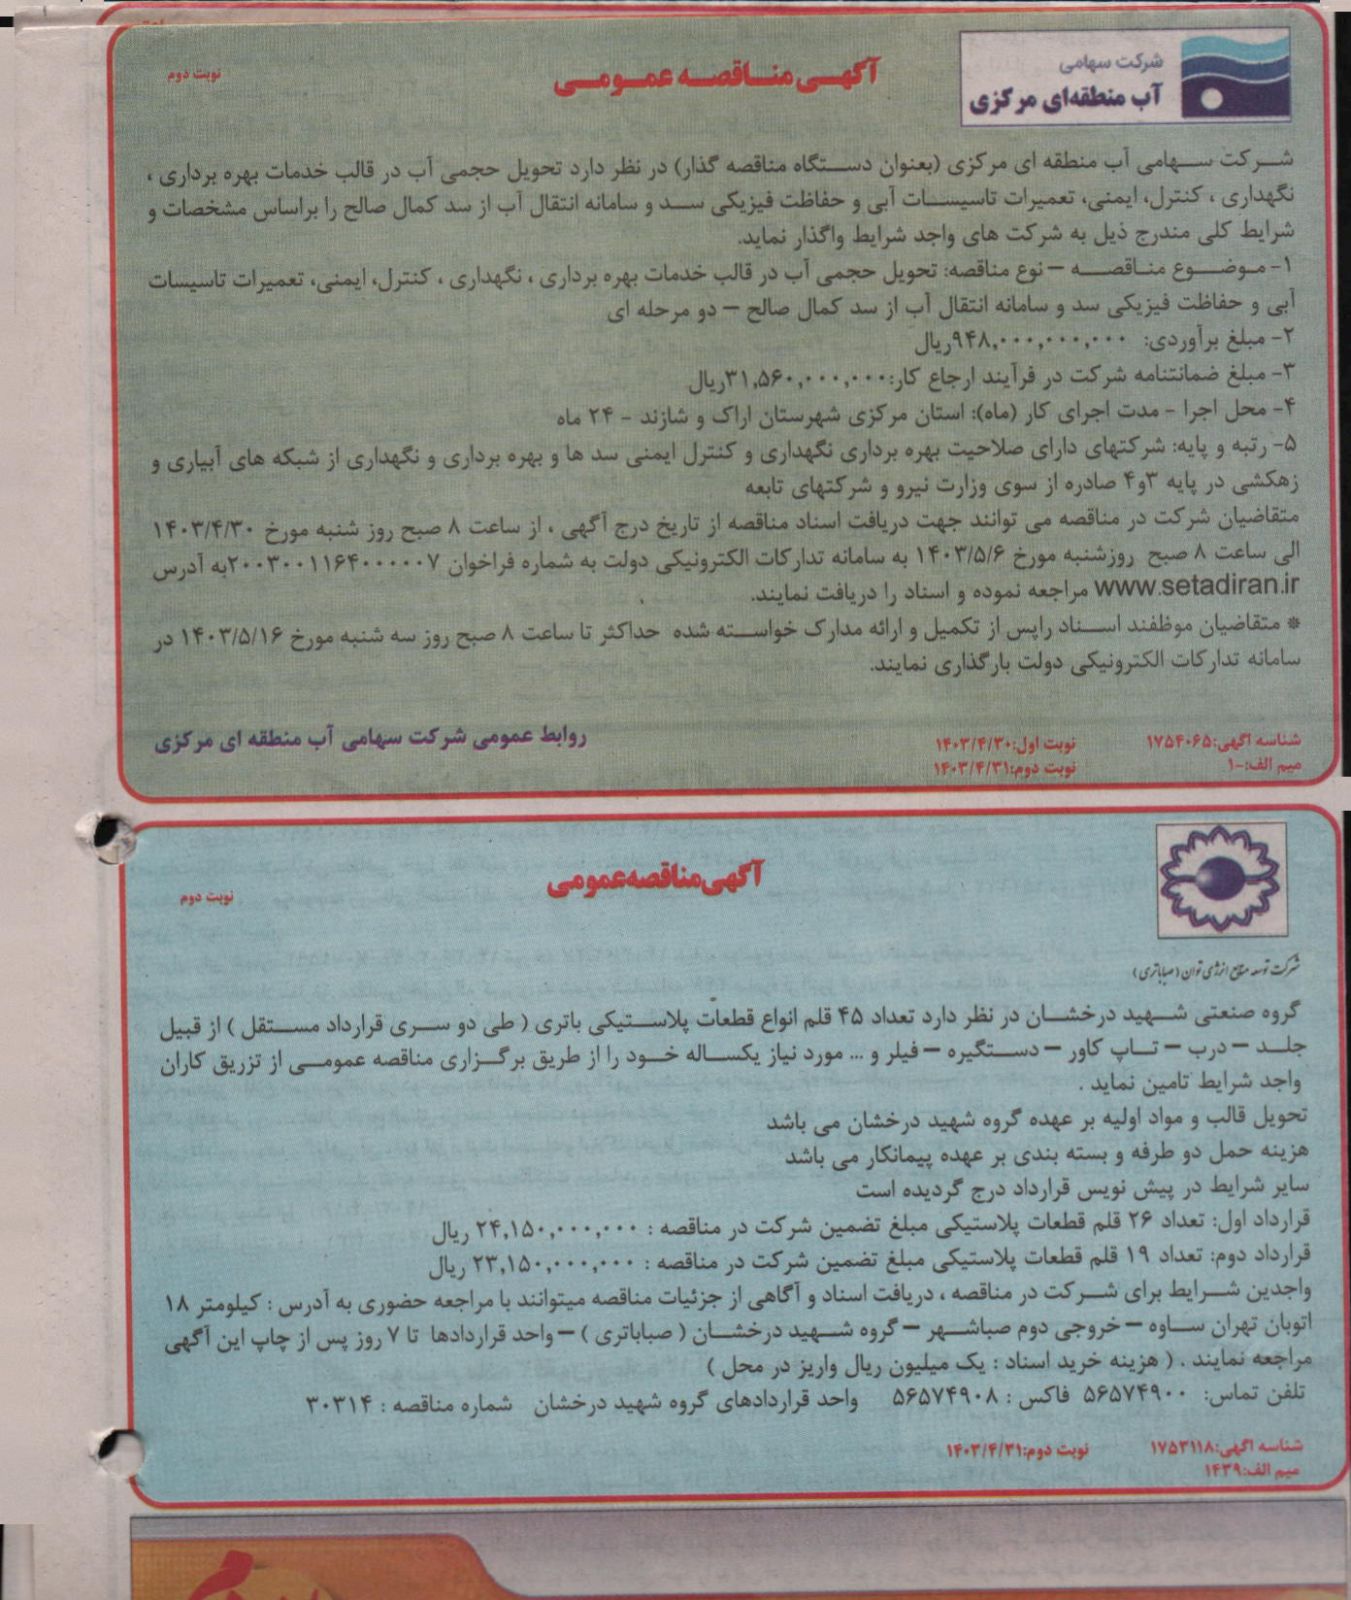 شرکت سهامی
آب منطقه‌ای مرکزی
آگهی مناقصه عمومی
نوبت دوم
شرکت سهامی آب منطقه ای مرکزی (بعنوان دستگاه مناقصه گذار) در نظر دارد تحویل حجمی آب در قالب خدمات بهره برداری ،
نگهداری ، کنترل، ایمنی، تعمیرات تاسیسات آبی و حفاظت فیزیکی سد و سامانه انتقال آب از سد کمال صالح را براساس مشخصات و
شرایط کلی مندرج ذیل به شرکت های واجد شرایط واگذار نماید.
۱- موضوع مناقصه – نوع مناقصه: تحویل حجمی آب در قالب خدمات بهره برداری ، نگهداری ، کنترل، ایمنی، تعمیرات تاسیسات
آبی و حفاظت فیزیکی سد و سامانه انتقال آب از سد کمال صالح – دو مرحله ای
۲- مبلغ برآوردی: ۹۴۸,۰۰۰,۰۰۰,۰۰۰ریال
۳- مبلغ ضمانتنامه شرکت در فرآیند ارجاع کار:۳۱,۵۶۰,۰۰۰,۰۰۰ریال
۴- محل اجرا - مدت اجرای کار (ماه): استان مرکزی شهرستان اراک و شازند - ۲۴ ماه
۵- رتبه و پایه: شرکتهای دارای صلاحیت بهره برداری نگهداری و کنترل ایمنی سد ها و بهره برداری و نگهداری از شبکه های آبیاری و
زهکشی در پایه ۳و۴ صادره از سوی وزارت نیرو و شرکتهای تابعه
متقاضیان شرکت در مناقصه می توانند جهت دریافت اسناد مناقصه از تاریخ درج آگهی ، از ساعت ۸ صبح روز شنبه مورخ ۱۴۰۳/۴/۳۰
الی ساعت ۸ صبح روزشنبه مورخ ۱۴۰۳/۵/۶ به سامانه تدارکات الکترونیکی دولت به شماره فراخوان ۲۰۰۳۰۰۱۱۶۴۰۰۰۰۰۷به آدرس
www.setadiran.ir مراجعه نموده و اسناد را دریافت نمایند.
* متقاضیان موظفند اسناد راپس از تکمیل و ارائه مدارک خواسته شده حداکثر تا ساعت ۸ صبح روز سه شنبه مورخ ۱۴۰۳/۵/۱۶ در
سامانه تدارکات الکترونیکی دولت بارگذاری نمایند.
شناسه آگهی:۱۷۵۴۰۶۵
میم الف:-۱
نوبت اول:۱۴۰۳/۴/۳۰
نوبت دوم:۱۴۰۳/۴/۳۱
روابط عمومی شرکت سهامی آب منطقه ای مرکزی
آگهی مناقصه عمومی
نوبت دوم
شرکت توسعه منابع انرژی توان (صباباتری)
گروه صنعتی شهید درخشان در نظر دارد تعداد ۴۵ قلم انواع قطعات پلاستیکی باتری ( طی دو سری قرارداد مستقل ) از قبیل
جلد – درب – تاپ کاور – دستگیره – فیلر و ... مورد نیاز یکساله خود را از طریق برگزاری مناقصه عمومی از تزریق کاران
واجد شرایط تامین نماید .
تحویل قالب و مواد اولیه بر عهده گروه شهید درخشان می باشد
هزینه حمل دو طرفه و بسته بندی بر عهده پیمانکار می باشد
سایر شرایط در پیش نویس قرارداد درج گردیده است
قرارداد اول: تعداد ۲۶ قلم قطعات پلاستیکی مبلغ تضمین شرکت در مناقصه : ۲۴,۱۵۰,۰۰۰,۰۰۰ ریال
قرارداد دوم: تعداد ۱۹ قلم قطعات پلاستیکی مبلغ تضمین شرکت در مناقصه : ۲۳,۱۵۰,۰۰۰,۰۰۰ ریال
واجدین شرایط برای شرکت در مناقصه ، دریافت اسناد و آگاهی از جزئیات مناقصه میتوانند با مراجعه حضوری به آدرس : کیلومتر ۱۸
اتوبان تهران ساوه – خروجی دوم صباشهر – گروه شهید درخشان ( صباباتری ) – واحد قراردادها تا ۷ روز پس از چاپ این آگهی
مراجعه نمایند . ( هزینه خرید اسناد : یک میلیون ریال واریز در محل )
تلفن تماس: ۵۶۵۷۴۹۰۰ فاکس : ۵۶۵۷۴۹۰۸ واحد قراردادهای گروه شهید درخشان شماره مناقصه : ۳۰۳۱۴
شناسه آگهی:۱۷۵۳۱۱۸
میم الف:۱۴۳۹
نوبت دوم:۱۴۰۳/۴/۳۱